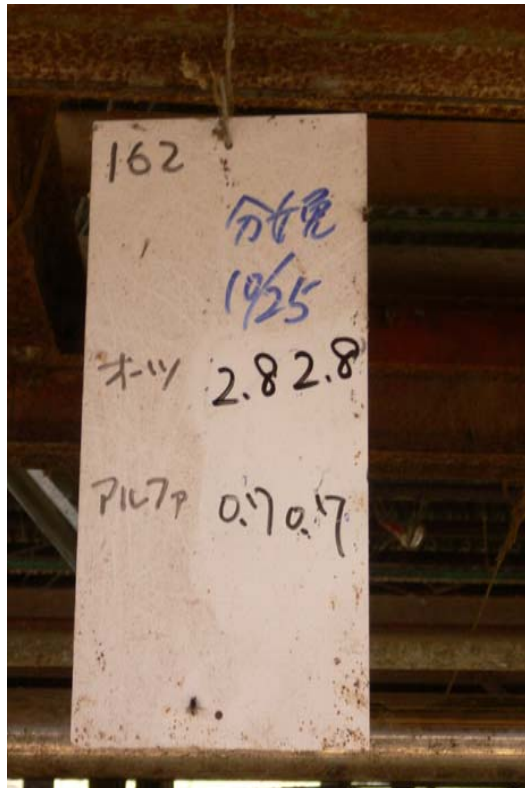 162
分娩
10/25
オーツ 2.8 2.8
アルファ 0.7 0.7